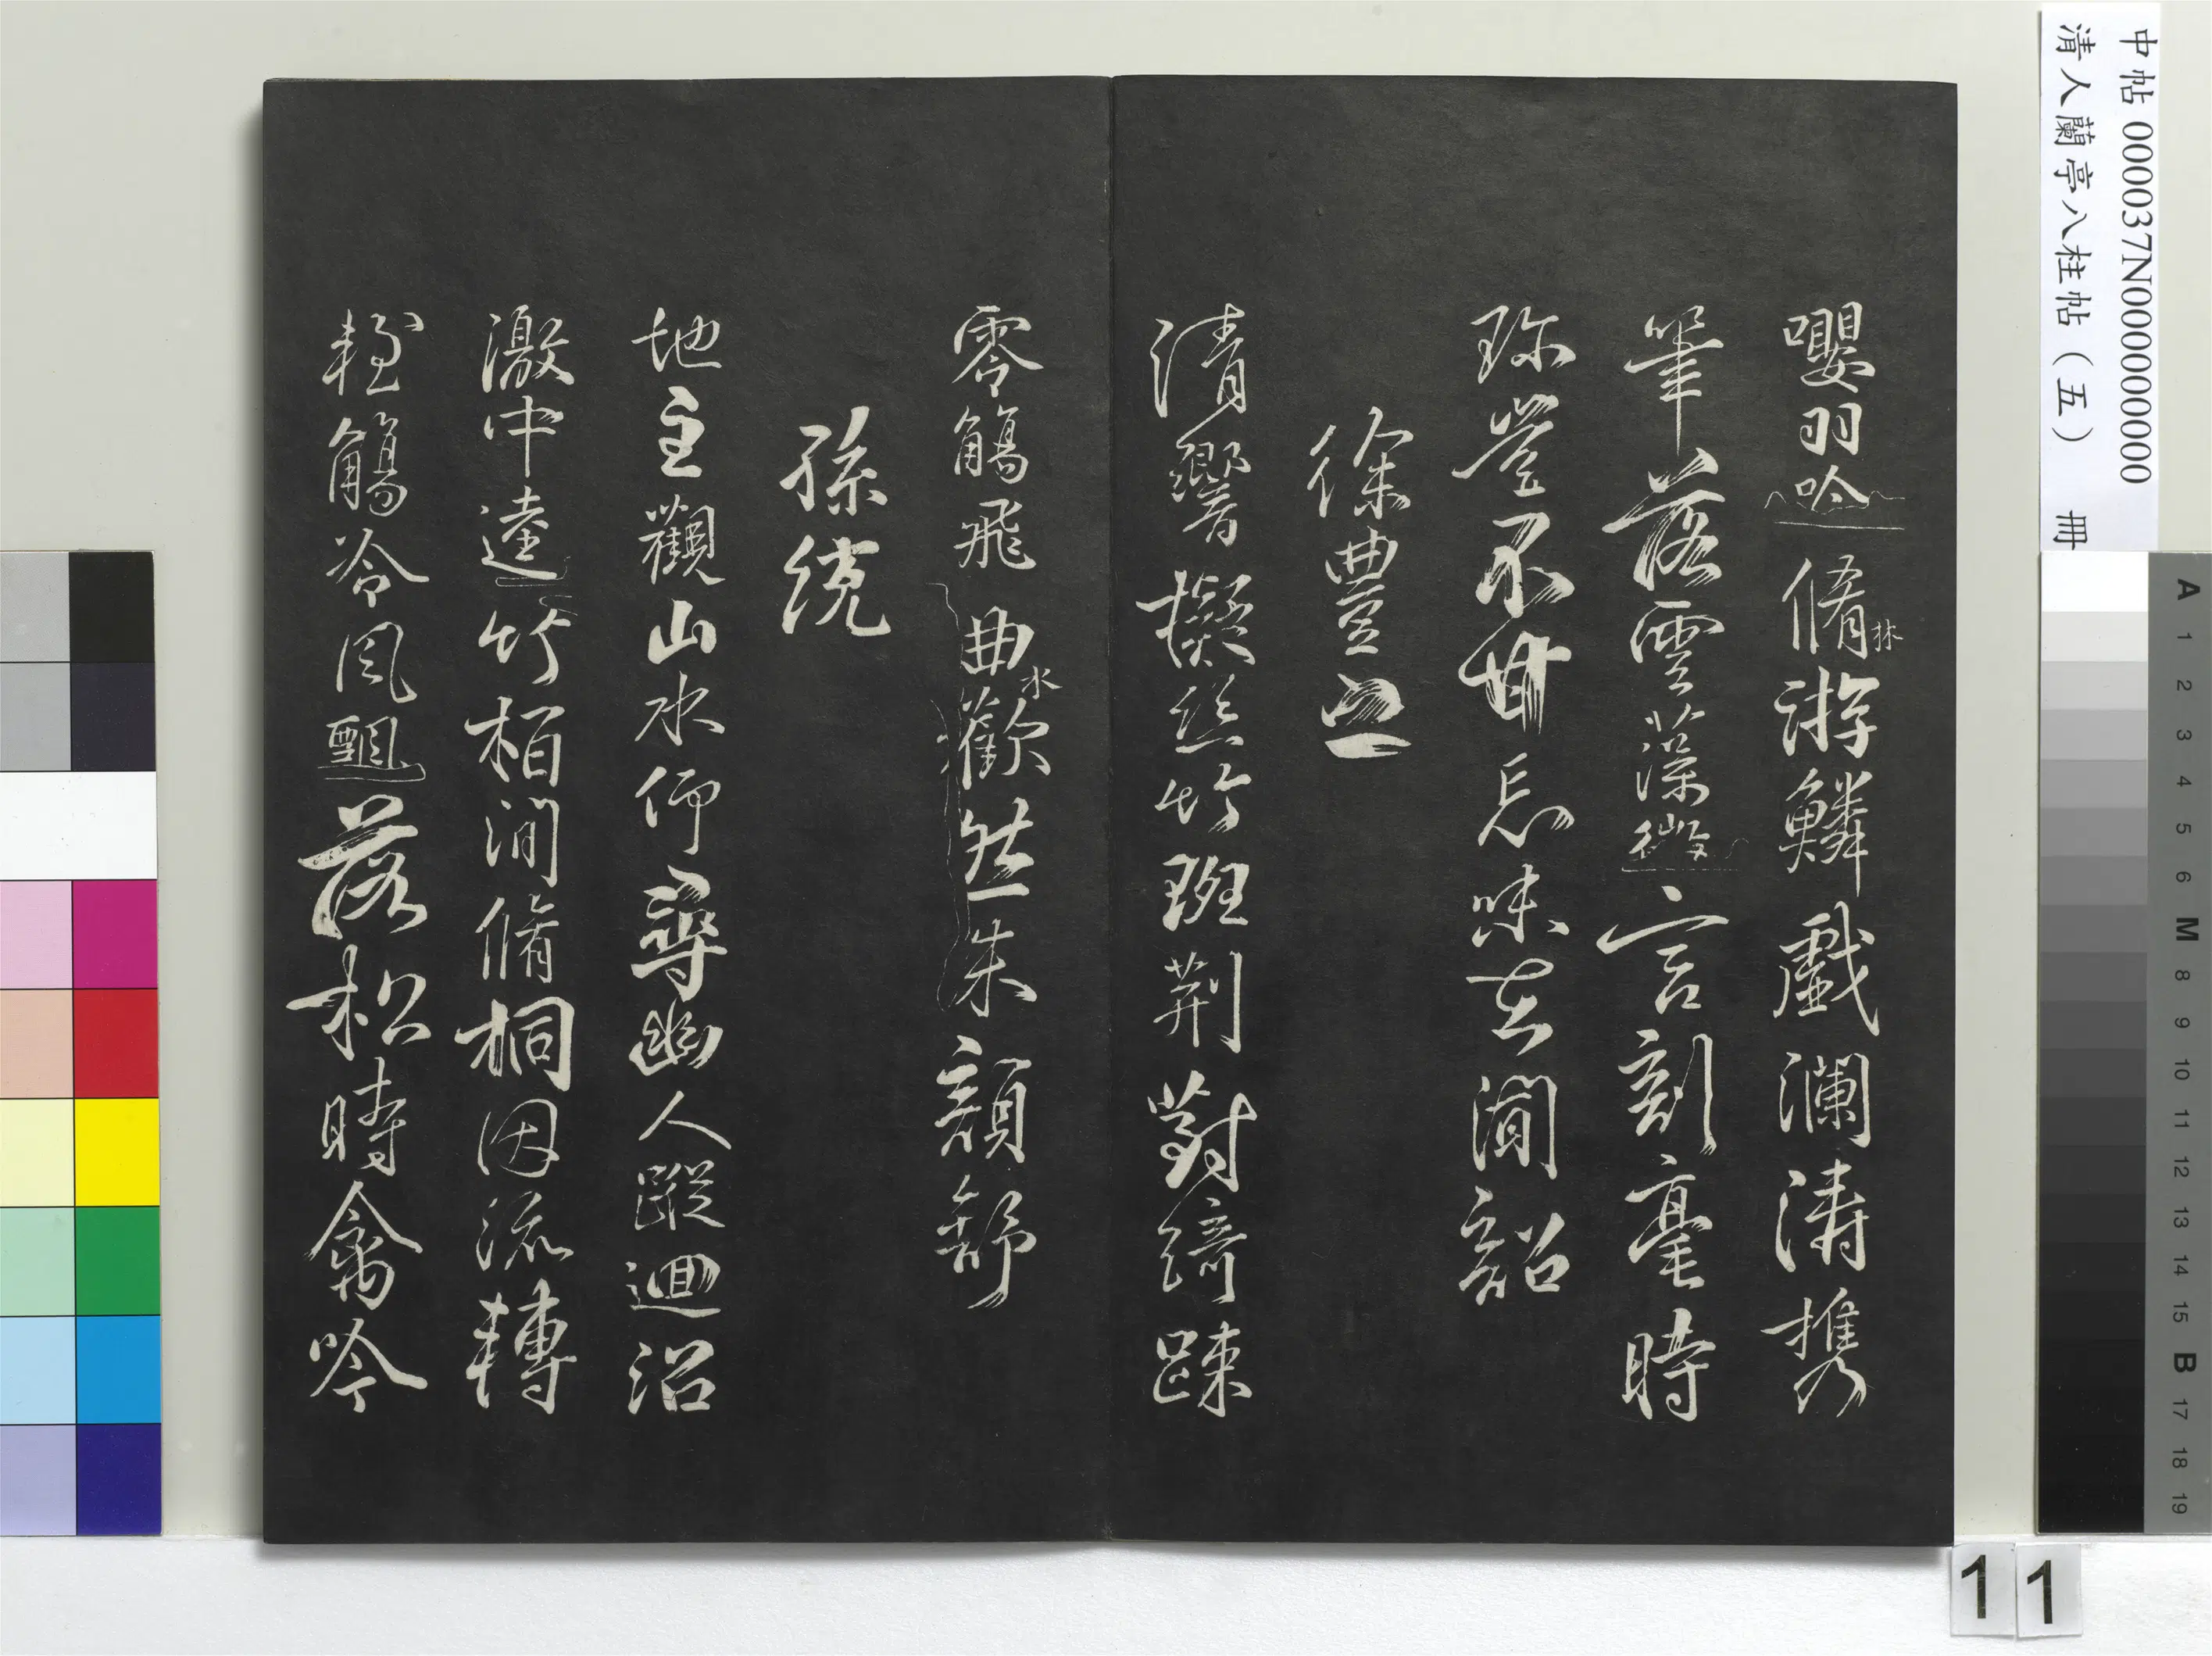 中帖 000037N000000000
清人蘭亭八柱帖（五） 冊
嚶羽吟脩林游鱗戲瀾濤携
筆落雲藻微言剖毫時
珍豈不甘忘味在聞韶
徐豐之
清響擬絲竹班荊對綺疎
零觴飛曲水歡然朱顏舒
孫統
地主觀山水仰尋幽人蹤迴沼
激中逵竹栢間脩桐因流轉
輕觴冷風飄落松時禽吟
A 1 2 3 4 5 6 M 8 9 10 11 12 13 14 15 B 17 18 19
1 1